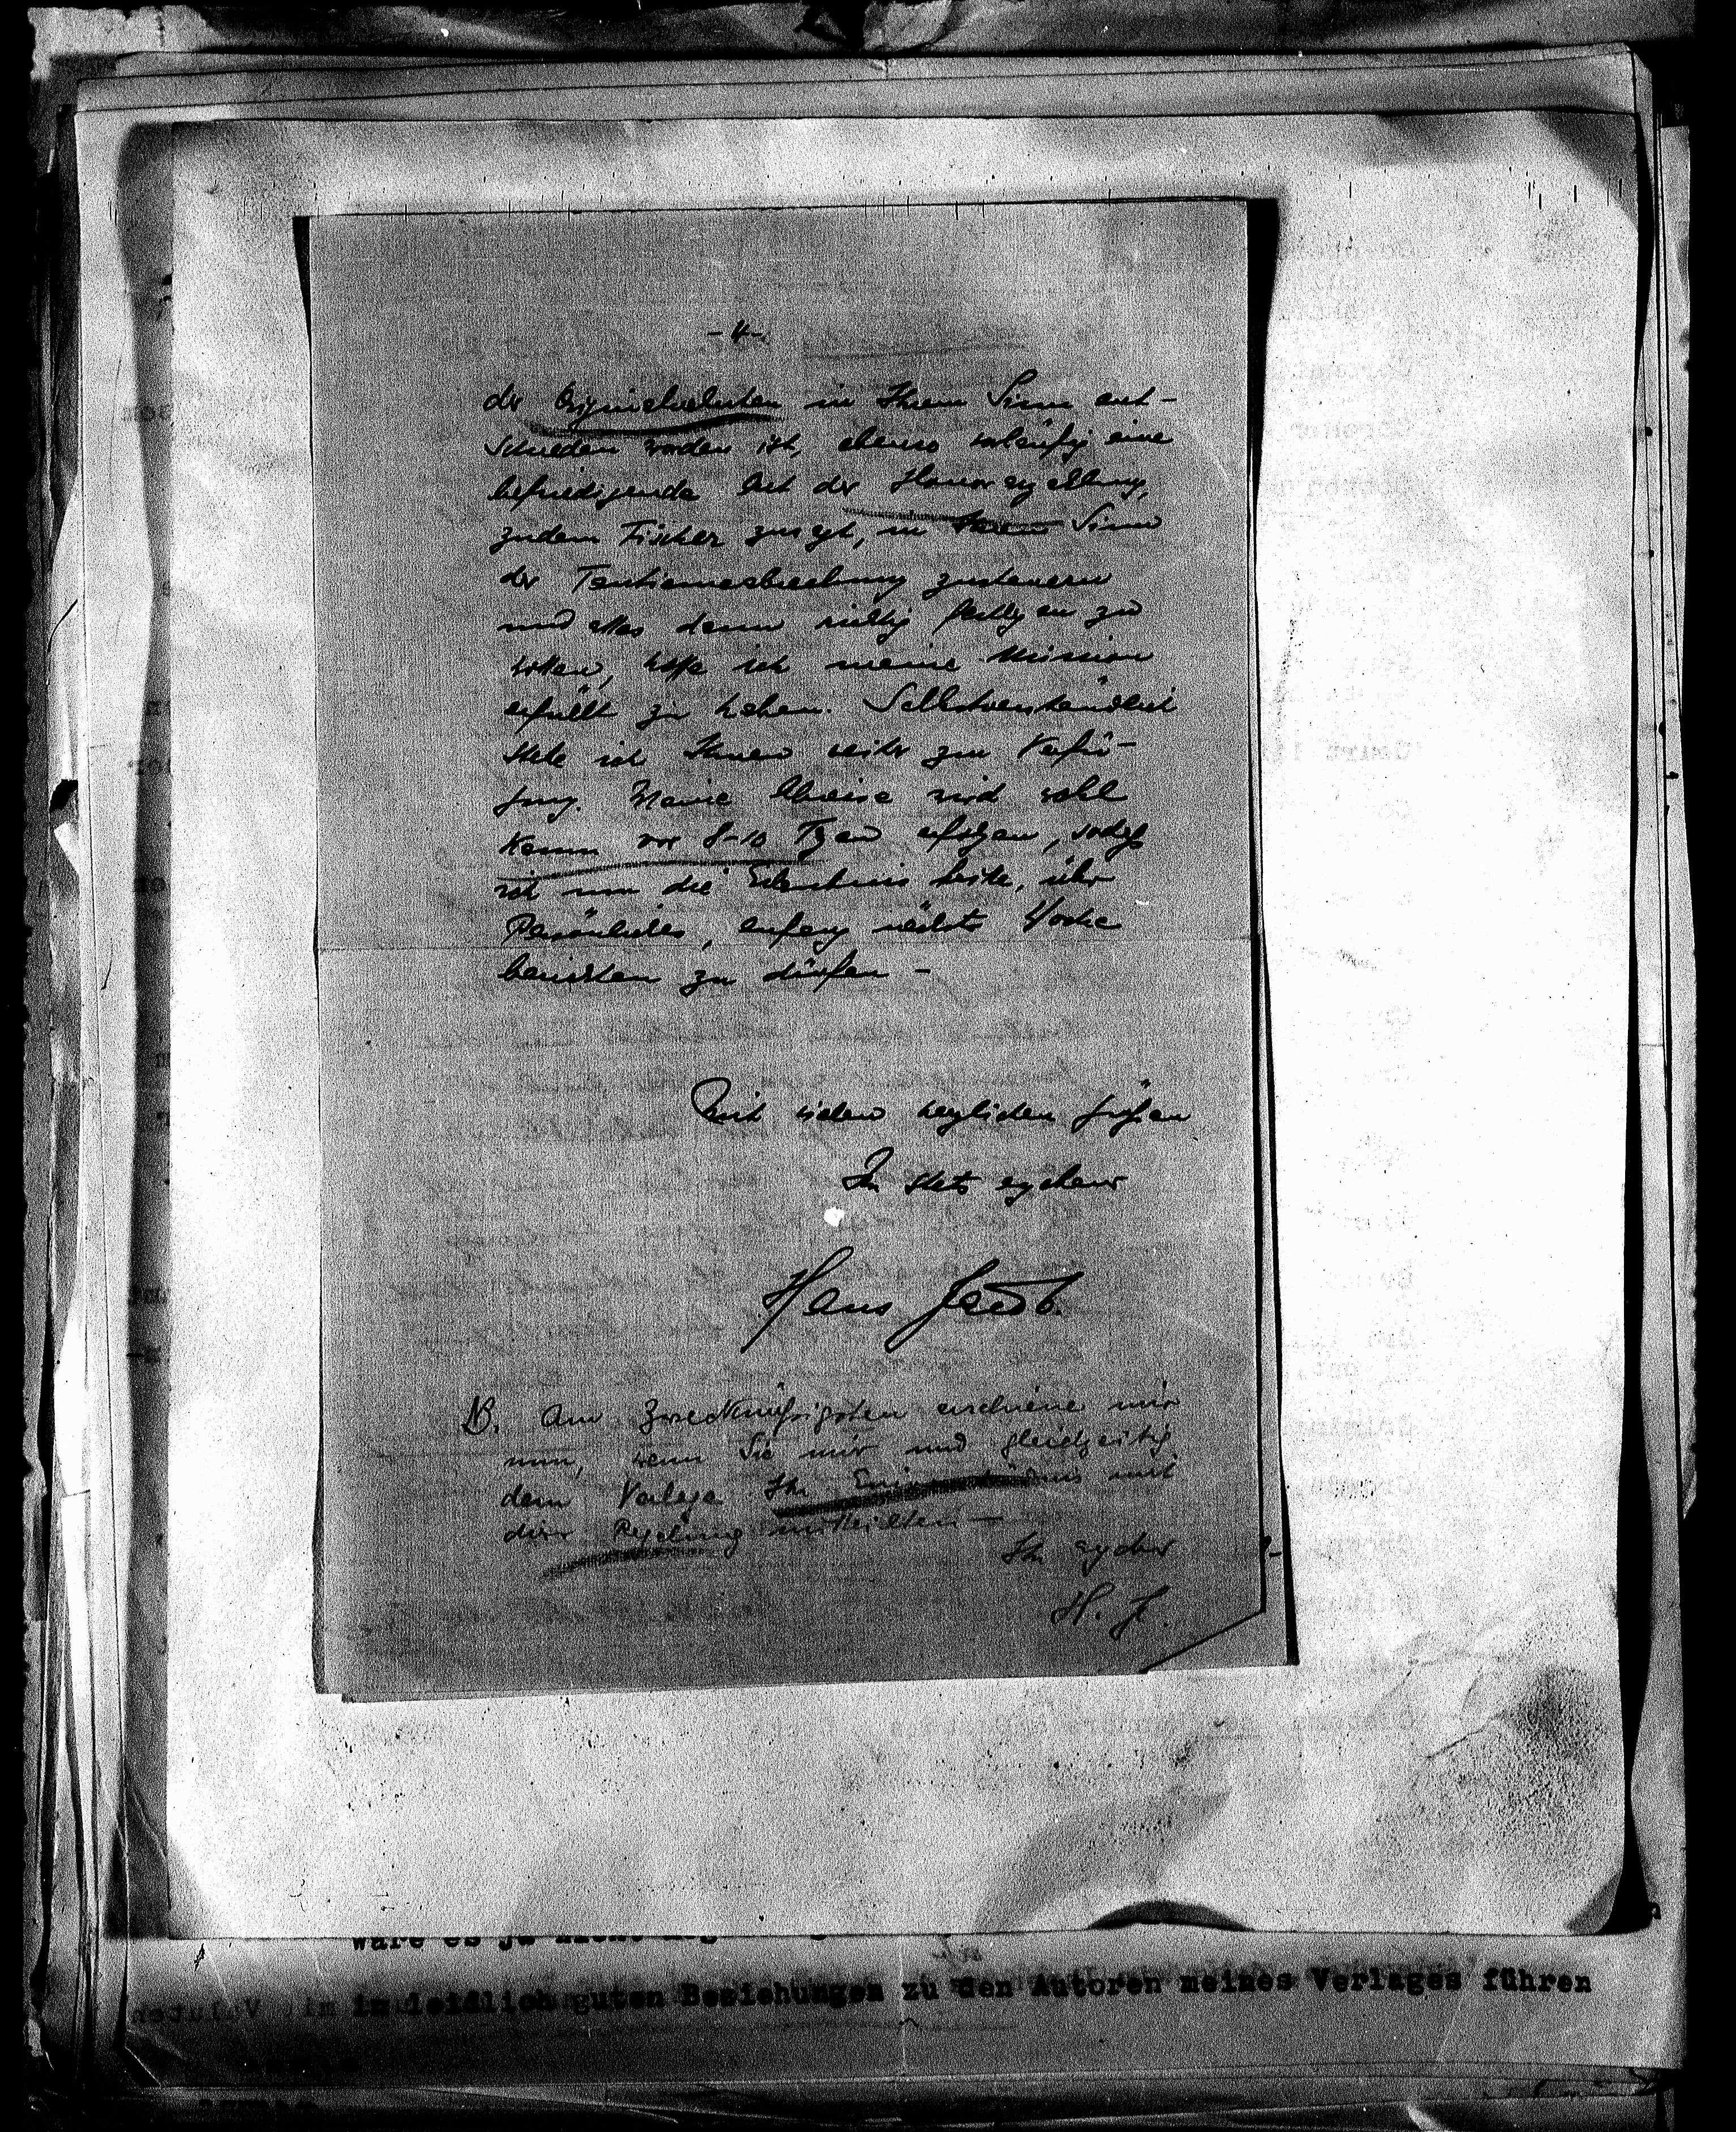 - 4 -
der Originalvaluten in Ihrem Sinne ent-
schieden worden ist, ebenso vorläufig eine
befriedigende Art der Honorarzahlung,
zudem Fischer zusagt, in Ihrem Sinne
der Tantiemeabrechnung zusteuern
und alles dann richtig festlegen zu
wollen, hoffe ich meine Mission
erfüllt zu haben. Selbstverständlich
stehe ich Ihnen weiter zur Verfü-
gung. Meine Abreise wird wohl
kaum vor 8-10 Tagen erfolgen, sodaß
ich um die Erlaubnis bitte, über
Persönliches, anfang nächster Woche
berichten zu dürfen -
Mit vielen herzlichen Grüßen
Ihr stets ergebener
Hans Jacob.
NB. Am zweckmäßigsten erschiene mir
nun, wenn Sie mir und gleichzeitig
dem Verlage Ihr Einverständnis mit
dieser Regelung mitteilten —
Ihr ergebener
H. J.
wäre es ja nicht
im leidlich guten Beziehungen zu den Autoren meines Verlages führen